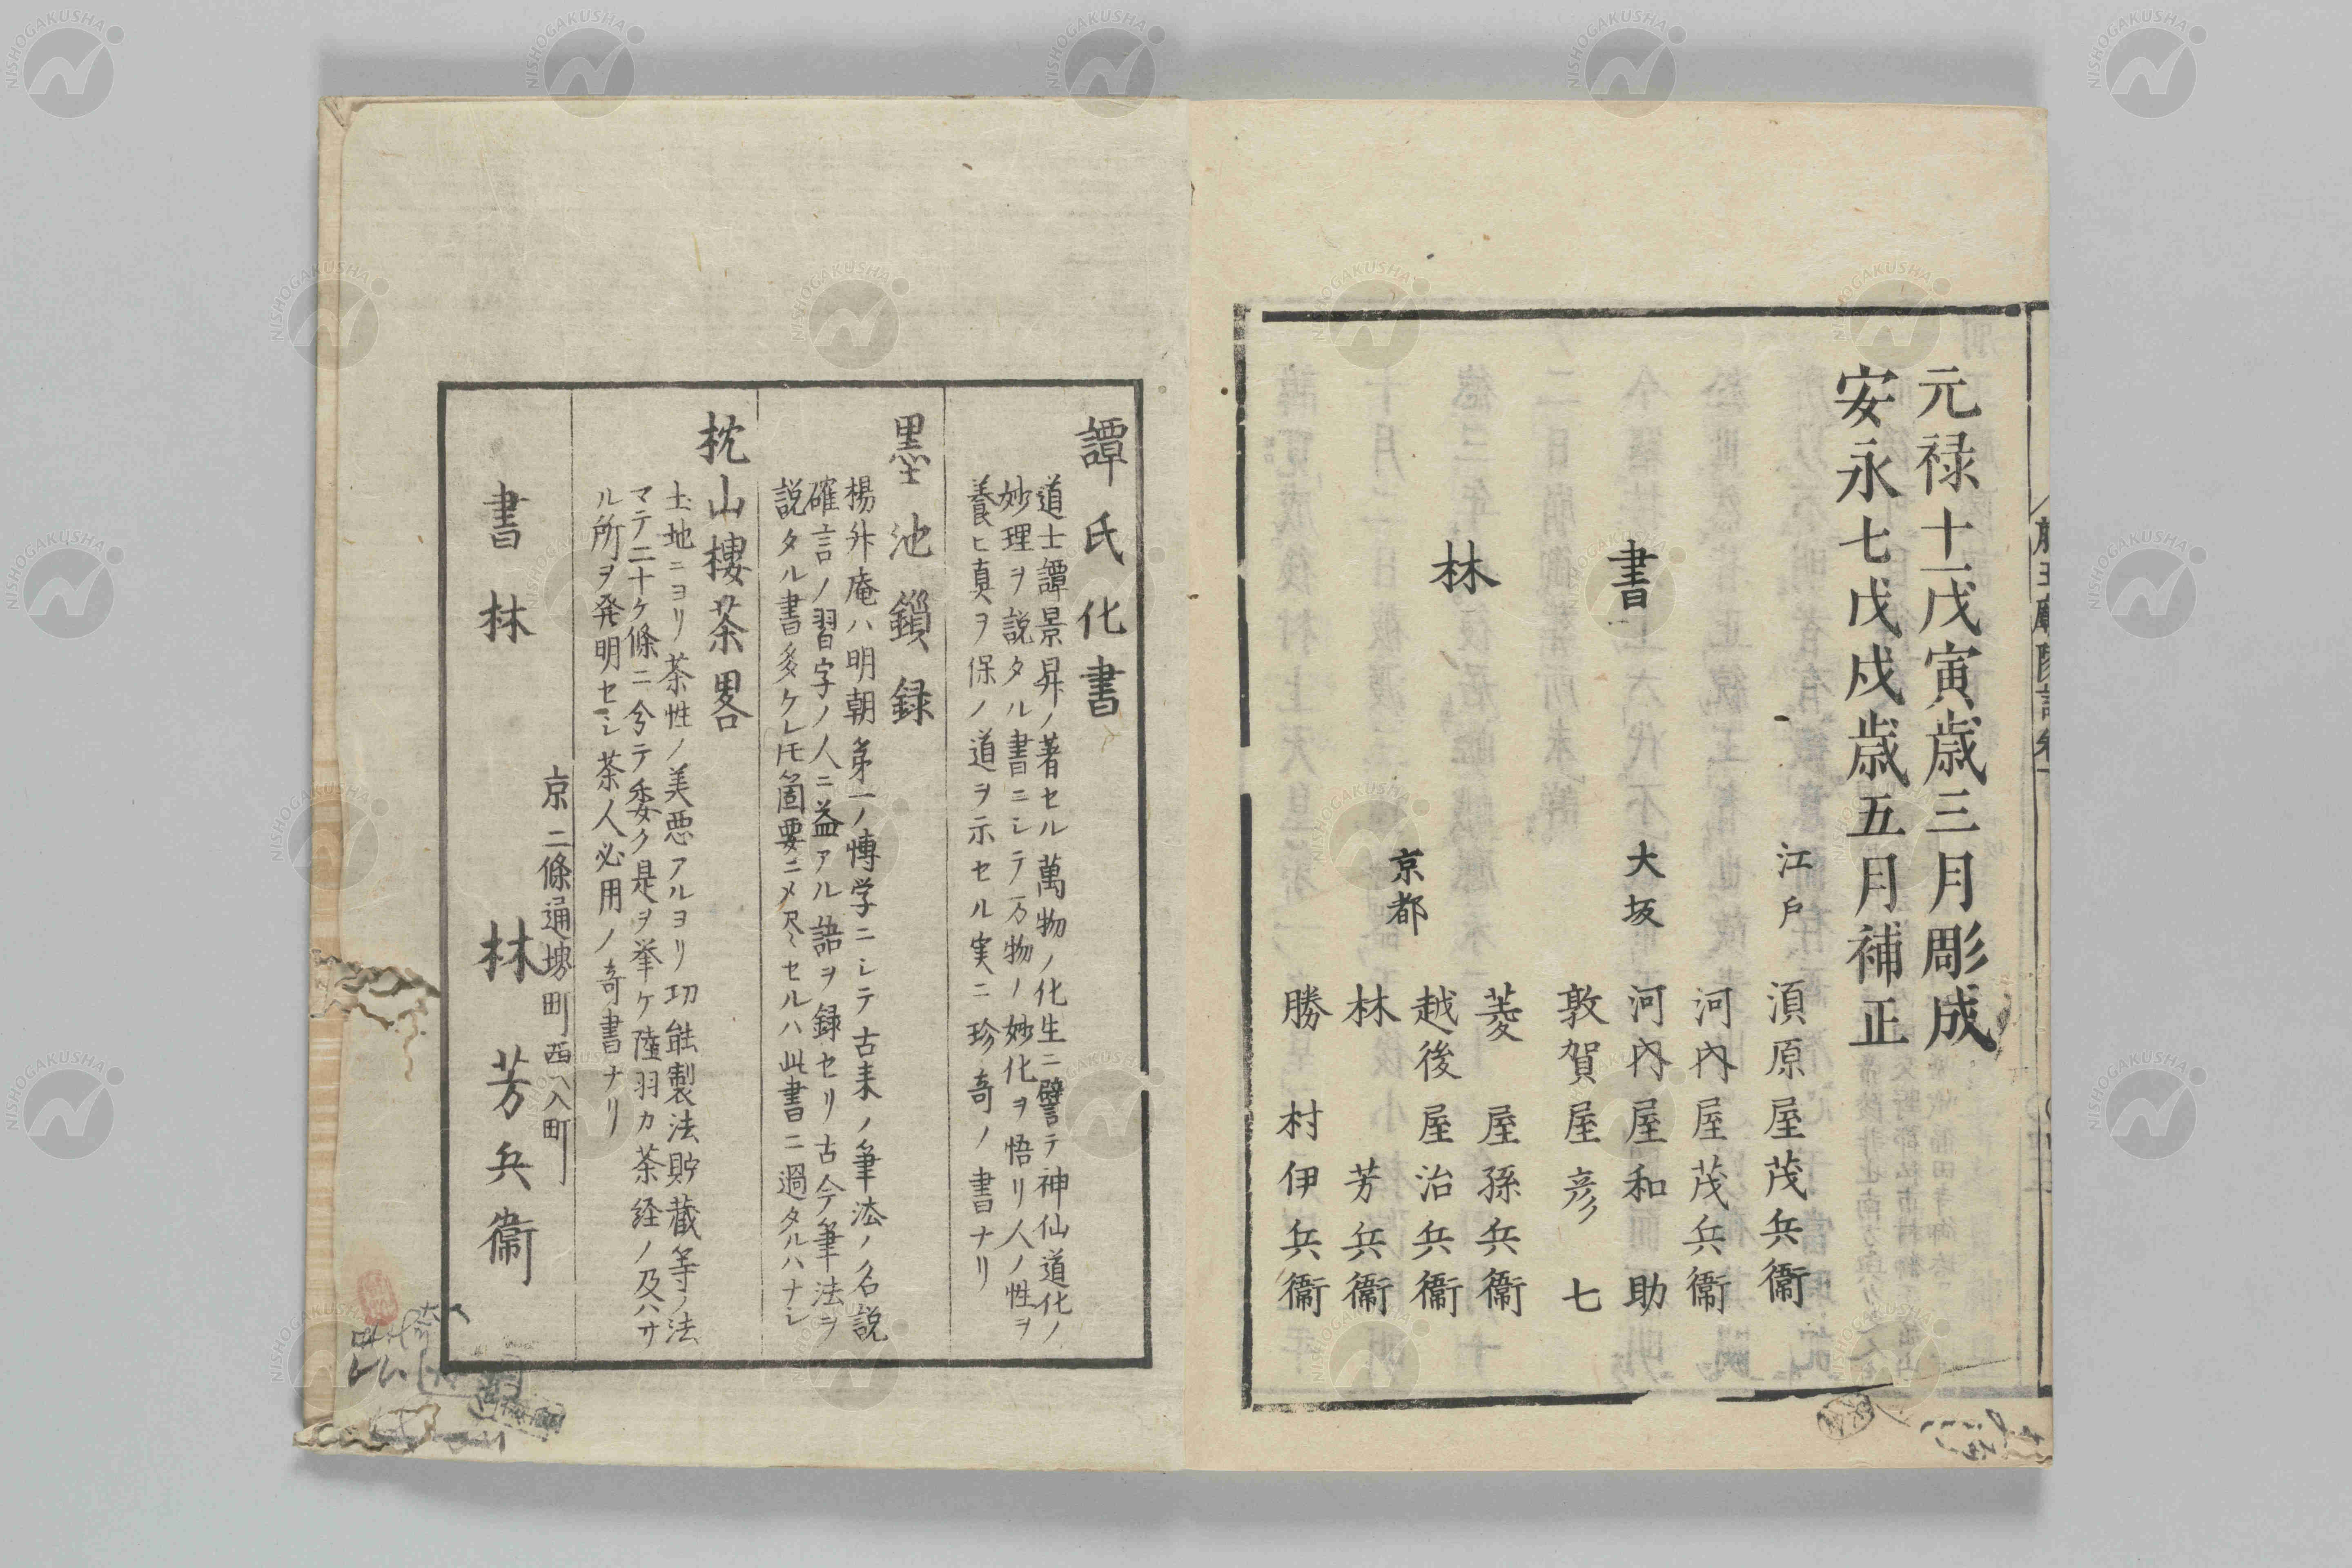 元禄十一戊寅歳三月彫成
安永七戊戌歳五月補正
書林
江戸
須原屋茂兵衞
河内屋茂兵衞
大坂
河内屋和助
敦賀屋彦七
京都
菱屋孫兵衞
越後屋治兵衞
林芳兵衞
勝村伊兵衞
譚氏化書
道士譚景昇ノ著セル萬物ノ化生ニ譬テ神仙道化ノ
妙理ヲ説タル書ニシテ万物ノ妙化ヲ悟リ人ノ性ヲ
養ヒ真ヲ保ノ道ヲ示セル実ニ珍奇ノ書ナリ
墨池鎻録
楊升庵ハ明朝第一ノ博学ニシテ古来ノ筆法ノ名説
確言ノ習字ノ人ニ益アル語ヲ録セリ古今筆法ヲ
説タル書多ケレ𪜈箇要ニメ尽セルハ此書ニ過タルハナシ
枕山樓茶畧
土地ニヨリ茶性ノ美悪アルヨリ功能製法貯蔵等ノ法
マテ二十ケ條ニ分テ委ク是ヲ挙ケ陸羽カ茶経ノ及ハサ
ル所ヲ発明セシ茶人必用ノ奇書ナリ
京二條通堺町西入町
書林 林芳兵衞
NISHOGAKUSHA